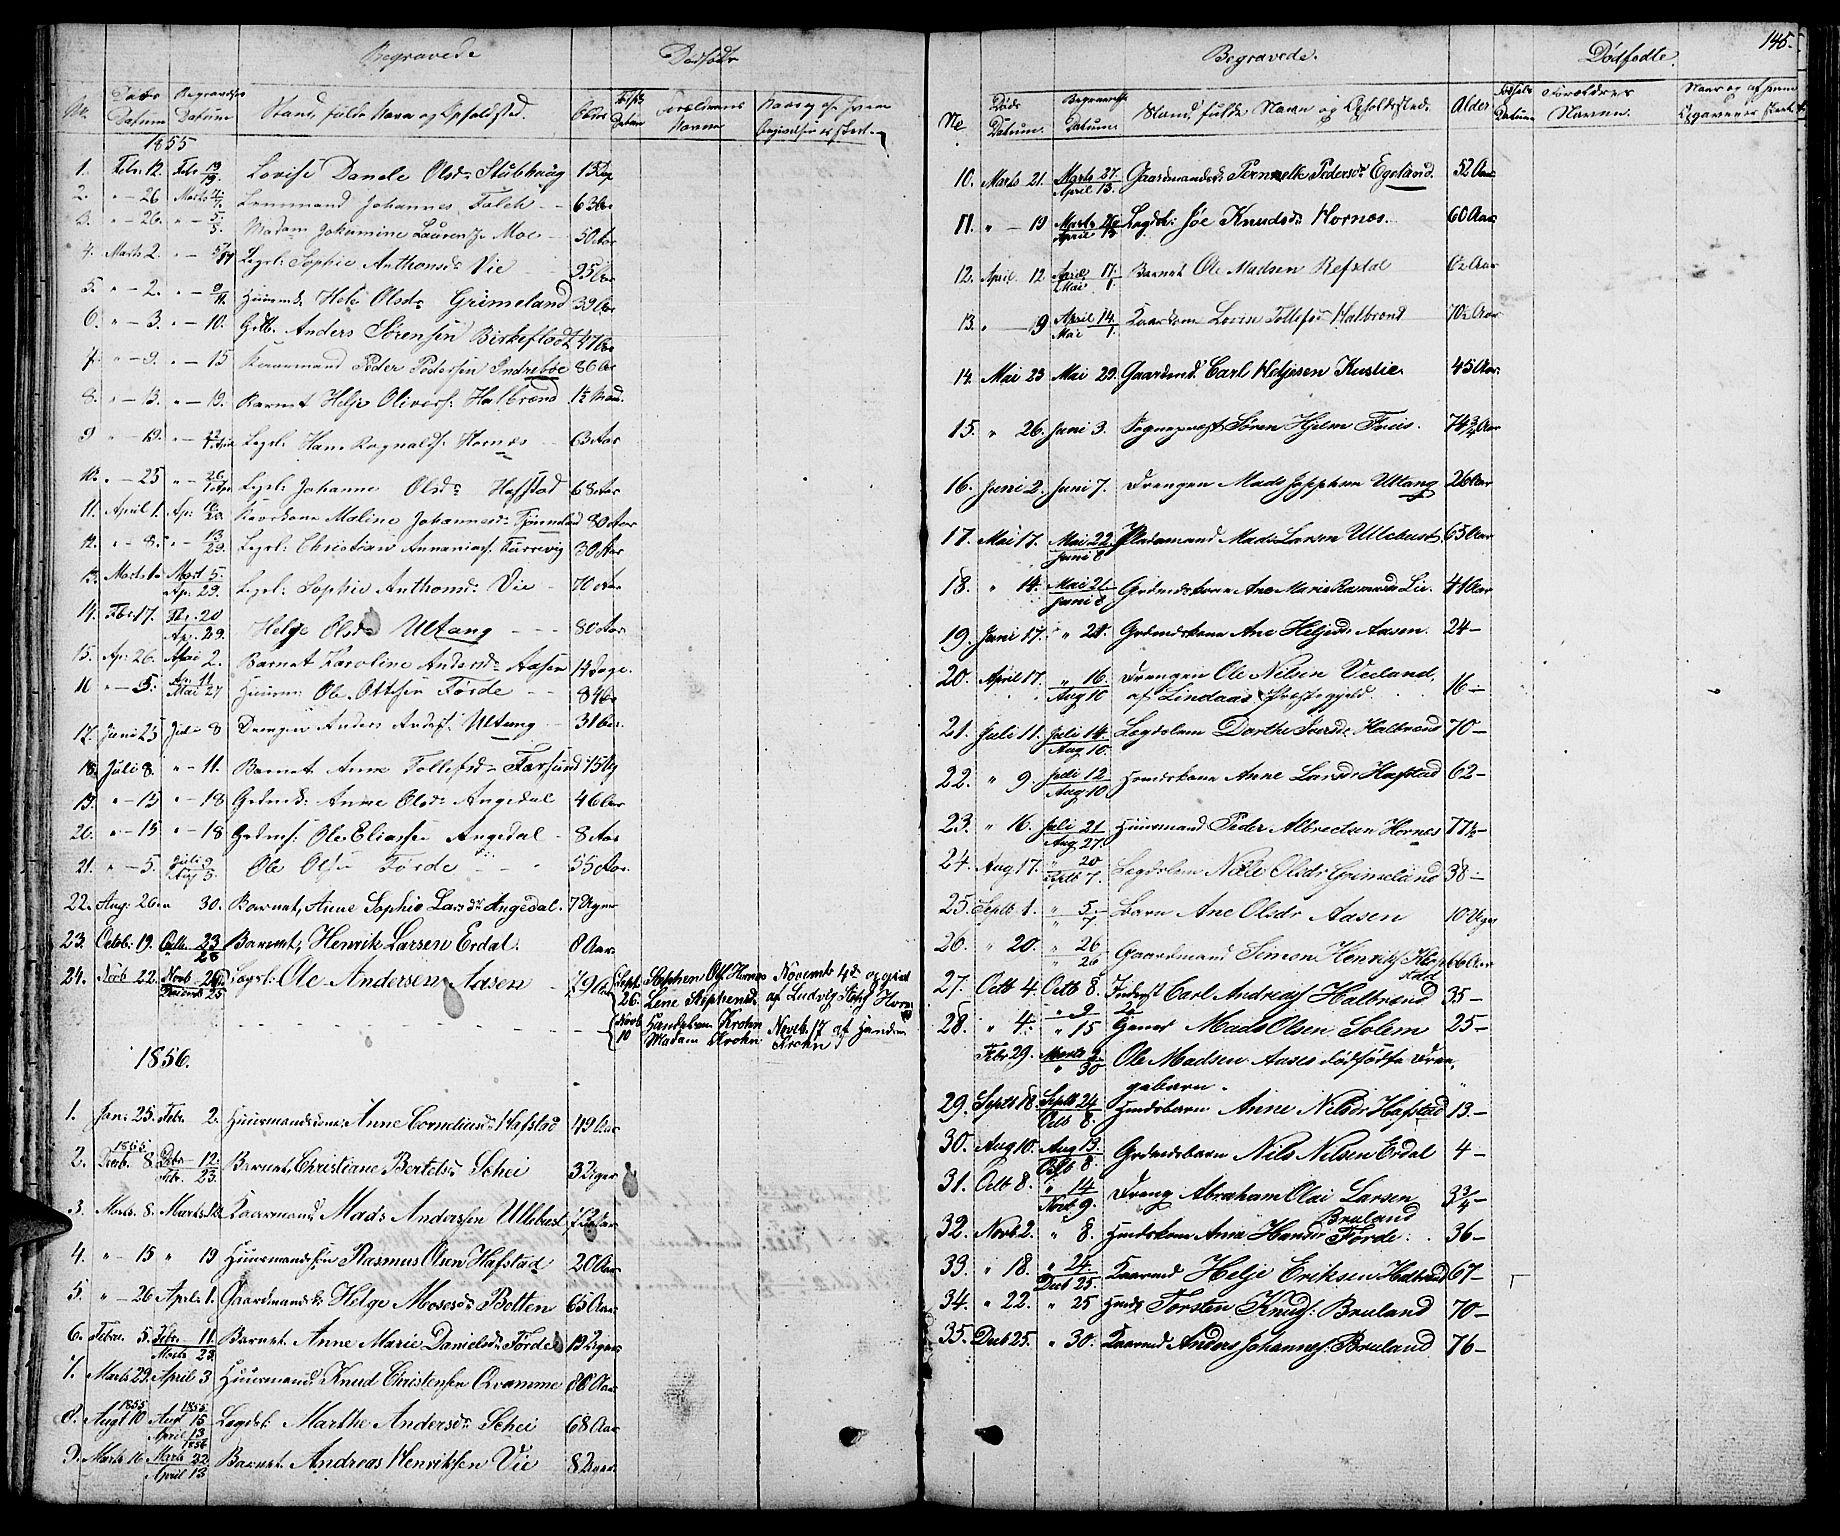 Begravede
Dødfødte
No.
Døds Datum
Begravelses Datum
Stand, fulde Navn og Opholdsted.
Alder
Forældrenes Navne
1855
1. Febr. 12. Febr. 19 Lovise Danele Olsdr Stubhaug
2. " - 26 Marts Lensmand Johannes Falch 63 Aar
3. " - 26. " - 5 Madam Jokumine Laurentze Moe 50 Aar
4. Marts 2. " - Legsl: Sophie Anthonsdr Vie 95 Aar
5. " - 2. " - 9/11. Huusmk. Helje Olsdr Grimeland 39 Aar
6. " - 3. " - 10. Grdb. Anders Sørensen Birkeflodt 47 Aar
7. " - 9. " - 15 Kaarmand Peder Pedersen Indrebøe 86 Aar
8. " - 13. " - 19. Barnet Helje Olivers: Halbrend 1½ Maad.
9 " - 19. " - Legsl: Hans Rognalds: Hornes 63 Aar
10. " - 25 " - 26. Legsl: Johanne Olsdr Hafstad 68 Aar
11. April 1. Ap: Kaarkone Maline Johannesdr Tjønneland 80 Aar
12. " - 8. " - 13 29. Legsl: Christian Annanias: Farsevig 30 Aar
13. Marts 1. Mart 5. Ap. 29. Legsl: Sophie Anthonsdr Vie 70 Aar
14. Feb. 17. Feb. 20 Ap. 29. Helge Olsdr Ultang 80 Aar
15. Ap. 26. Mai 2. Barnet Karoline Andersdr Aasen 14 Dage.
16 " - 5. Ap. 11 Mai 27 Huusm: Ole Ottesen Førde 84 Aar
17. Juni 25 Juli 8 Drengen Anders Anders: Ultang 31 Aar.
18. Juli 8. " - 11. Barnet Anne Tollefsdr Farsund
19. " - 13 " - 18 Grdmsk: Anne Olsdr Angedal 46 Aar
20. " - 15 " - 18 Grdms: Ole Eliassen Angedal 8 Aar
21. " - 5. Juli 9 Aug 5 Ole Olsen Førde 55 Aar.
22. Aug: 26 " 30. Barnet, Anne Sophie Larsdr Angedal. 7 Uger
23. Octob: 19. Octb. 23 28 Barnet, Henrik Larsen Erdal. 8 Aar
24. Novb 22. Novb 26 Decemb 25 Legsl: Ole Andersen Aasen 79 Aar
Sept. 26. Stephen Ols. Hornes Lene Stephensdr Novembr 4de opgivet af Ludvig Steph: Hornes
Novb. 10 Handelsm. Krohn Madam Krohn Novb. 17 af Handelsm Krohn
1856.
1. Jan: 25. Febr. 2. Huusmandskone: Anne Corneliusdr Hafstad 49 Aar
2. 1855 Decb. 8. Decbr. 12. Febr. 23. Barnet, Christiane Bertelsdr Schei 3 Uger
3. Marts. 8. Marts Kaarmand, Mads Anderssen Ullebust
4. " - 15 " 19 Huusmandssøn Rasmus Olsen Hafstad 20 Aar
5. " - 26 April 1. Gaardmandsk: Helge Mosesdr Botten 65 Aar
6. Febru. 5. Febr. 11. Marts 23. Barnet. Anne Marie Danielsdr Førde
7. Marts 29. April 3 Huusmand, Knud Christensen Qvamme 88 Aar
8. 1855 Augt 10 1855 Augt 15 April 13 1856 Legdsk: Marthe Andersdr Schei 68 Aar
9. Marts 16 Marts 22 April 13 Barnet Andreas Henriksen Vie 8 Uger
145.
Begravede.
Dødfødte.
No
Døds Datum.
Begravelses Datum.
Stand, fulde Navn og Opholdsted.
Alder
Fødsels Datum
Forældres Navne.
10. Marts 21. Marts 27. April 13. Gaardmandsk: Pernelle Pedersdr Egeland. 52 Aar
11. " - 19 Marts 26 April 13 Legdsl: Joe Knudsdr Hornes. 60 Aar
12. April 12. April 17. Mai 1. Barnet Ole Madsen Refstal ½ Aar
13. " - 19 April 14. Mai 1. Kaarkone Loren Tollefsdr Halbrend 70½ Aar
14. Mai 23 Mai 29. Gaardmd. Carl Heljesen Kuslie. 45 Aar
15. " 26. Juni 3. Sognepræst Søren Hjelm Friis. 74¾ Aar
16. Juni 2. Juni 7. Drengen Mads Josephsen Ultang 26 Aar
17. Mai 17. Mai 22. Juni 8 Pladsmand Mads Larsen Ullebust 65 Aar
18. " 14. Mai 21. Juni 8 Grdmdskone Ane Marie Rasmusdr Lie. 41 Aar
19. Juni 17. " 21. Grdmdskone Ane Heljesdr Aasen. 24 -
20. April 17. " 16 Aug 10 Drengen Ole Nilsen Veiland, af Lindaas Præstegjeld. 16 -
21. Juli 11. Juli 14. Aug 10. Legdslem Dorthe Iversdr Halbrend 70 -
22. " 9. Juli 12 Aug 10 Hmdskone Anne Larsdr Hafstad 62 -
23. " 16. Juli 21 Aug 27. Huusmand Peder Albrectsen Hornes 77½ -
24. Aug 17. " 20 Septb 7. Legdslem Nille Olsdr Grimeland 38 -
25. Septb 1. " 5. " 7 Barn Ane Olsdr Aasen 10 Uger
26. " 20. " 26 " 26 Gaardmand Simon Henriks: Hafstad 66 Aar
27. Octb 4. Octb 8. Inderst Carl Andreas: Halbrend 35 -
28. " 4. " 15 Mads Olsen Solem 25 -
Febr 29. Marts 9. " 30 Ole Madsen Aases dødfødte Drengebarn.
29. Septb 18. Septb 24 Octb 8. Hmdsbarn Anne Nilsdr Hafstad 13 -
30. Aug 10. Aug 13. Octb 8. Grdmdsbarn Nils Nilsen Erdal 4 -
31. Octb 8. " 14 Novb 9. Dreng Abraham Olai Larsen Bruland 3¾ -
32. Novb. 2. " 8. Hmdskone Anne Hansdr Førde. 36 -
33. " 18. " 24. Decb 25. Kaarmd Helje Eriksen Halbrend 67 -
34. " 22. " 25 Hmd. Torsten Knuds: Bruland 70 -
35. Decb 25. " 30. Kaarmd Anders Johannes: Bruland 76 -